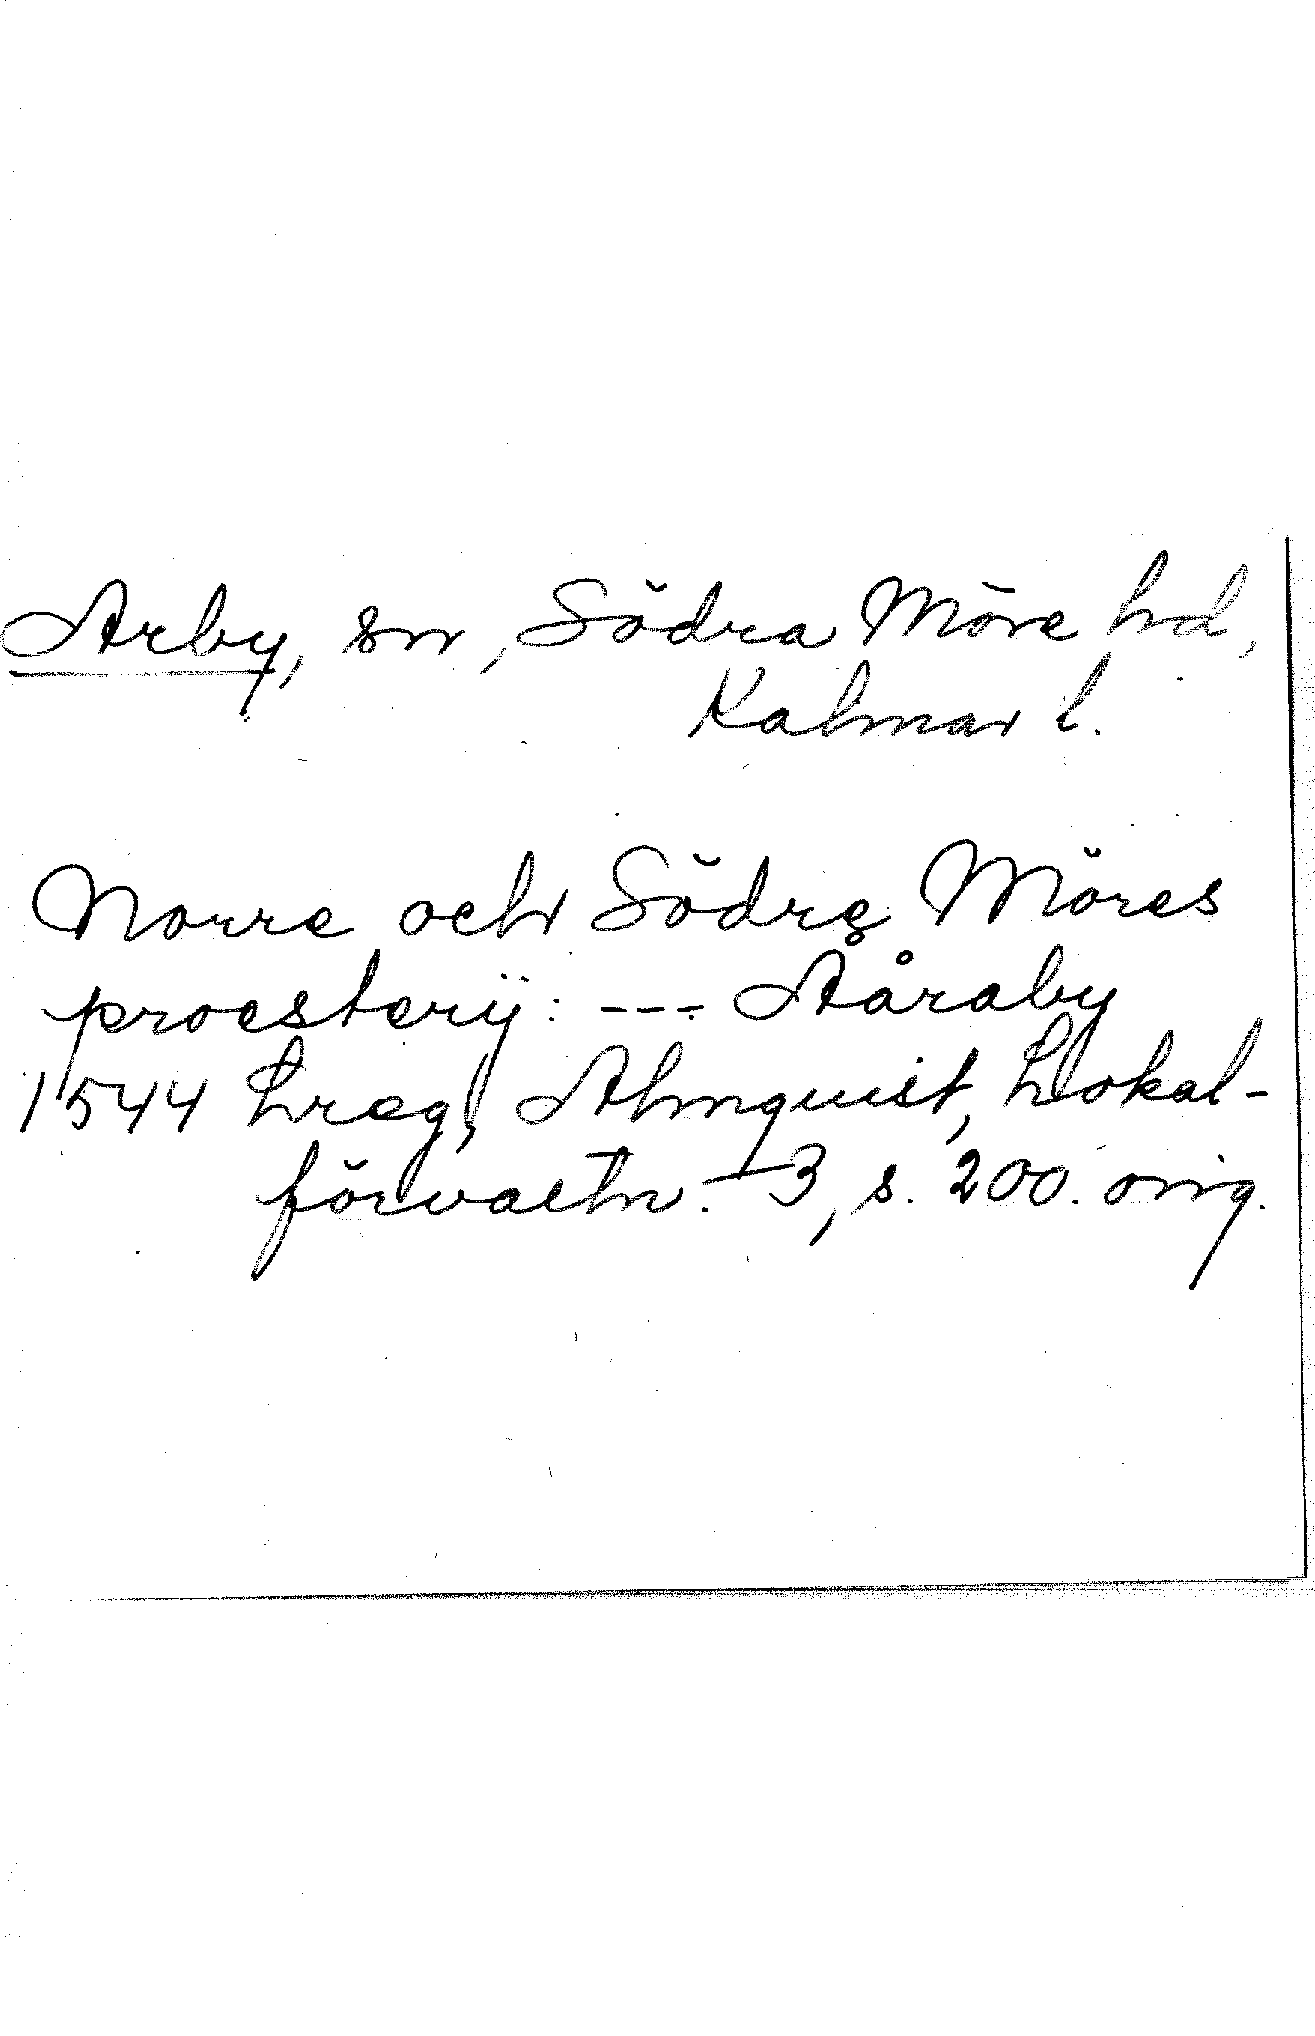 Arby, sn, Södra Möre hd,
Kalmar l.
Norre och Södre Möres
proestery̎: --- Aåraby
1544 Lreg, Almquist, Lokal-
förvaltn. 3, s. 200. orig.